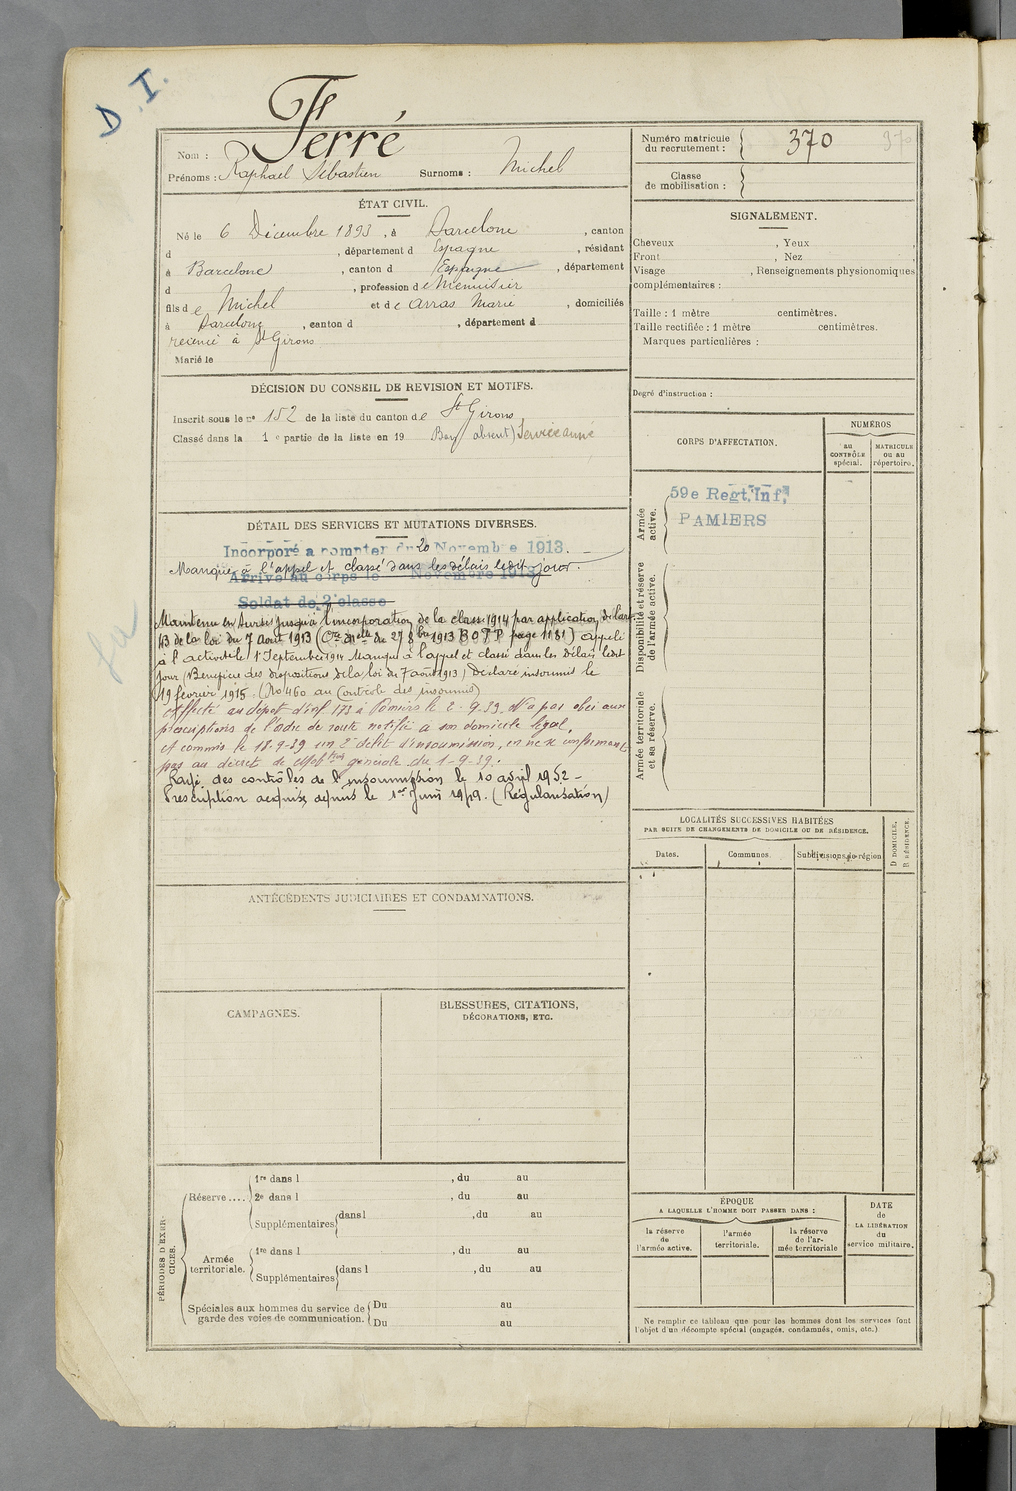 D. I.
Ferré
Nom :
Prénoms : Raphael Sébastien Surnoms : Michel
Numéro matricule du recrutement : 370
370
Classe de mobilisation :
ÉTAT CIVIL.
Né le 6 Décembre 1893, à Barcelone, canton
d , département d Espagne, résidant
à Barcelone, canton d Espagne, département
d , profession de Menuisier
fils de Michel et de Arras Marie, domiciliés
à Barcelone, canton d , département d
recensé à St Girons
Marié le
SIGNALEMENT.
Cheveux , Yeux ,
Front , Nez
Visage , Renseignements physionomiques
complémentaires :
Taille : 1 mètre centimètres.
Taille rectifiée : 1 mètre centimètres.
Marques particulières :
Degré d'instruction :
DÉCISION DU CONSEIL DE REVISION ET MOTIFS.
Inscrit sous le no 152 de la liste du canton de St Girons
Classé dans la 1 e partie de la liste en 19 Bon absent) Service armé
CORPS D'AFFECTATION.
NUMÉROS
au CONTRÔLE spécial.
MATRICULE ou au répertoire.
Armée active.
59e Regt. Inf.
PAMIERS
Disponibilité et réserve de l'armée active.
Armée territoriale et sa réserve.
DÉTAIL DES SERVICES ET MUTATIONS DIVERSES.
Incorporé a compter du 20 Novembre 1913.
Manque à l'appel et classé dans les délais ledit jour.
Arrivé au corps le Novembre 1913
Soldat de 2e classe
Maintenu en sursis jusqu'à l'incorporation de la classe 1914 par application de l'art
43 de la loi du 7 août 1913 (Cre Mlle du 27 8bre 1913 B O P P page 1181) appelé
à l'activité le 1er Septembre 1914 Manque à l'appel et classé dans les délais ledit
jour (Bénéficie des dispositions de la loi du 7 août 1913) Déclaré insoumis le
19 février 1915 (No 460 au Contrôle des insoumis)
Affecté au dépôt d'inf 173 à Pamiers le 2-9-39. N'a pas obéi aux
prescriptions de l'ordre de route notifié à son domicile légal,
et commis le 18-9-39 un 2e délit d'insoumission, en ne se conformant
pas au décret de Mobtion générale du 1-9-39.
Rayé des contrôles de l'insoumission le 10 avril 1952 –
Prescription acquise depuis le 1er Juin 1949. (Régularisation)
LOCALITÉS SUCCESSIVES HABITÉES
PAR SUITE DE CHANGEMENTS DE DOMICILE OU DE RÉSIDENCE.
Dates.
Communes.
Subdivisions de région
D DOMICILE.
R RÉSIDENCE.
ANTÉCÉDENTS JUDICIAIRES ET CONDAMNATIONS.
CAMPAGNES.
BLESSURES, CITATIONS,
DÉCORATIONS, ETC.
PÉRIODES D'EXERCICES.
Réserve ....
1re dans l , du au
2e dans l , du au
Supplémentaires dans l , du au
Armée territoriale.
1re dans l , du au
Supplémentaires dans l , du au
Spéciales aux hommes du service de
garde des voies de communication.
Du au
Du au
ÉPOQUE
A LAQUELLE L'HOMME DOIT PASSER DANS :
la réserve de l'armée active.
l'armée territoriale.
la réserve de l'armée territoriale
DATE de LA LIBÉRATION du service militaire.
Ne remplir ce tableau que pour les hommes dont les services font
l'objet d'un décompte spécial (engagés, condamnés, omis, etc.)